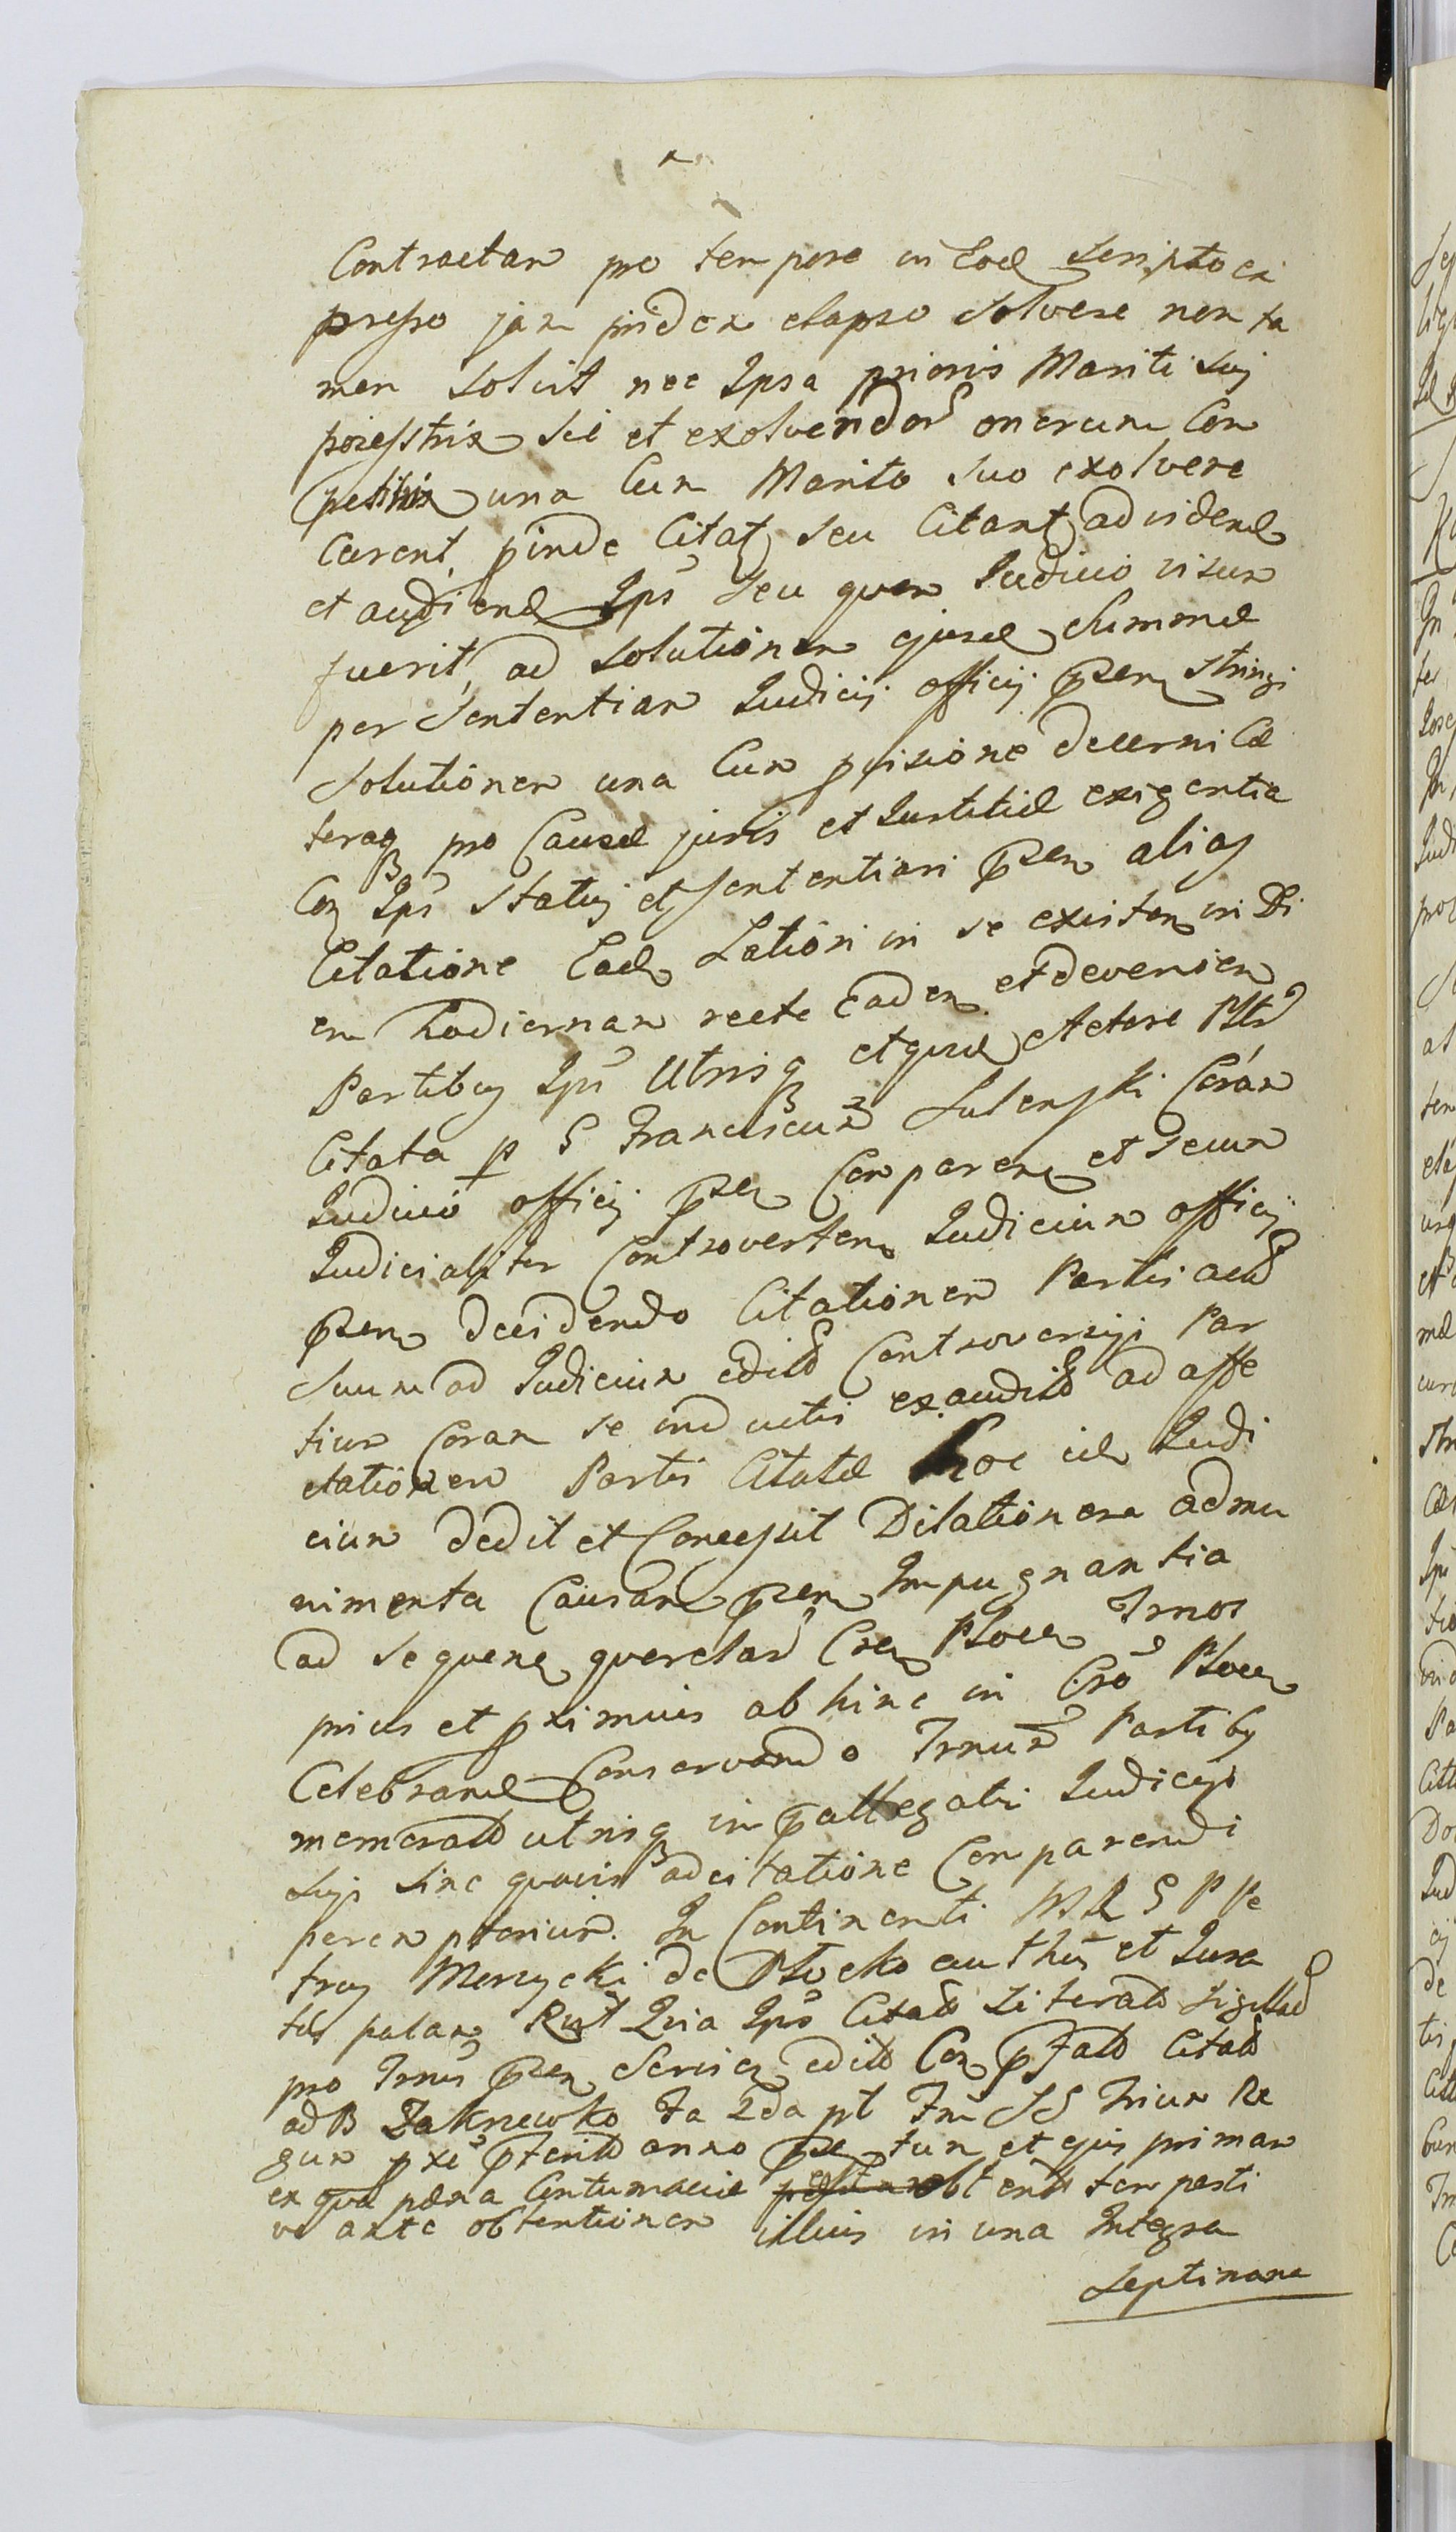 Contractam pro tempore in Eod Scripto ex
presso jam pridem elapso solvere non ta
men solvit nec Ipsa prioris Mariti sui
possestrix Sei et exolvendor onerum Com
petitrix una Cum Marito suo exolvere
Curent, pinde Citat seu Citant ad videnđ
et audienđ Ips seu quem Judicio visum
fuerit, ad solutionem ejusd Summæ
per Sententiam Judicij officij pzen stringi
Solutionem una Cum pvisione decerni Cæ
teraq pro Causæ juris et Justitiæ exigentia
Con Ips statuj et sententiari pzen alias
Citatione Ead Latiori in se existen in Di
em hodiernam recte Cadem et devenien
Partibus Ips Utrisq et quid Actore Pltr
Citata p S Franciscum Sulenski Coram
Judicio officij pzen Comparen et secum
Judicialiter Controverten Judicium officij
pzen decidendo Citationem Partis act
Suum ad Judicium edit Controversijs Par
tium Coram se inductis exaudit ad affe
ctationem Partis Citatæ hoc id Judi
cium dedit et Concessit Dilationem ad mu
nimenta Causam pzen Impugnantia
ad sequenq querelar Cren Plocen Trnos
prius et pximius ab hinc in Cro Plocen
Celebrand Conservando Trnum Partibus
memorat utrisq in pallegatis Judicijs
suis sine quavis adcitatione Comparendi
peremptorium. In Continenti MR S P Pe
trus Merzycki de Plocko authen et Jura
tus palam Rut Quia Ips Citat Literat sigillat
pro Trnis pzen Servien edit Con pfat Citat
ad B Zaknewko Fa 2da pt Fm SS Trium Re
gum pxe pterit anno pze tum et ejus primam
ex qva pæna Contumaciæ est obtent tempesti
ve ante obtentionem illius in una Integra
Septimana